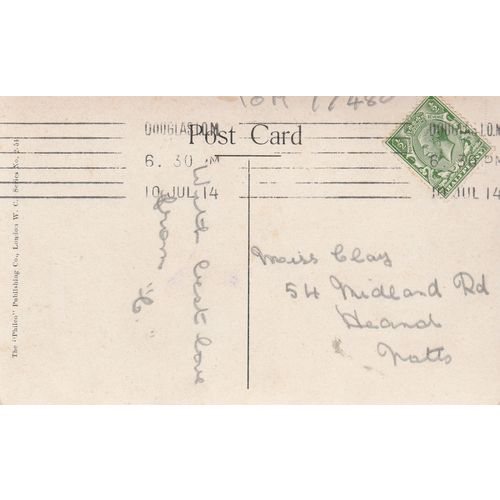 IOM 17480
DOUGLAS I.O.M.
6. 30 PM
10 JUL 14
DOUGLAS I.O.M.
6. 30 PM
10 JUL 14
Post Card
With best love
from "C."
Miss Clay
54 Midland Rd
Heanor
Notts
The "Philco" Publishing Co., London W. C. Series No.